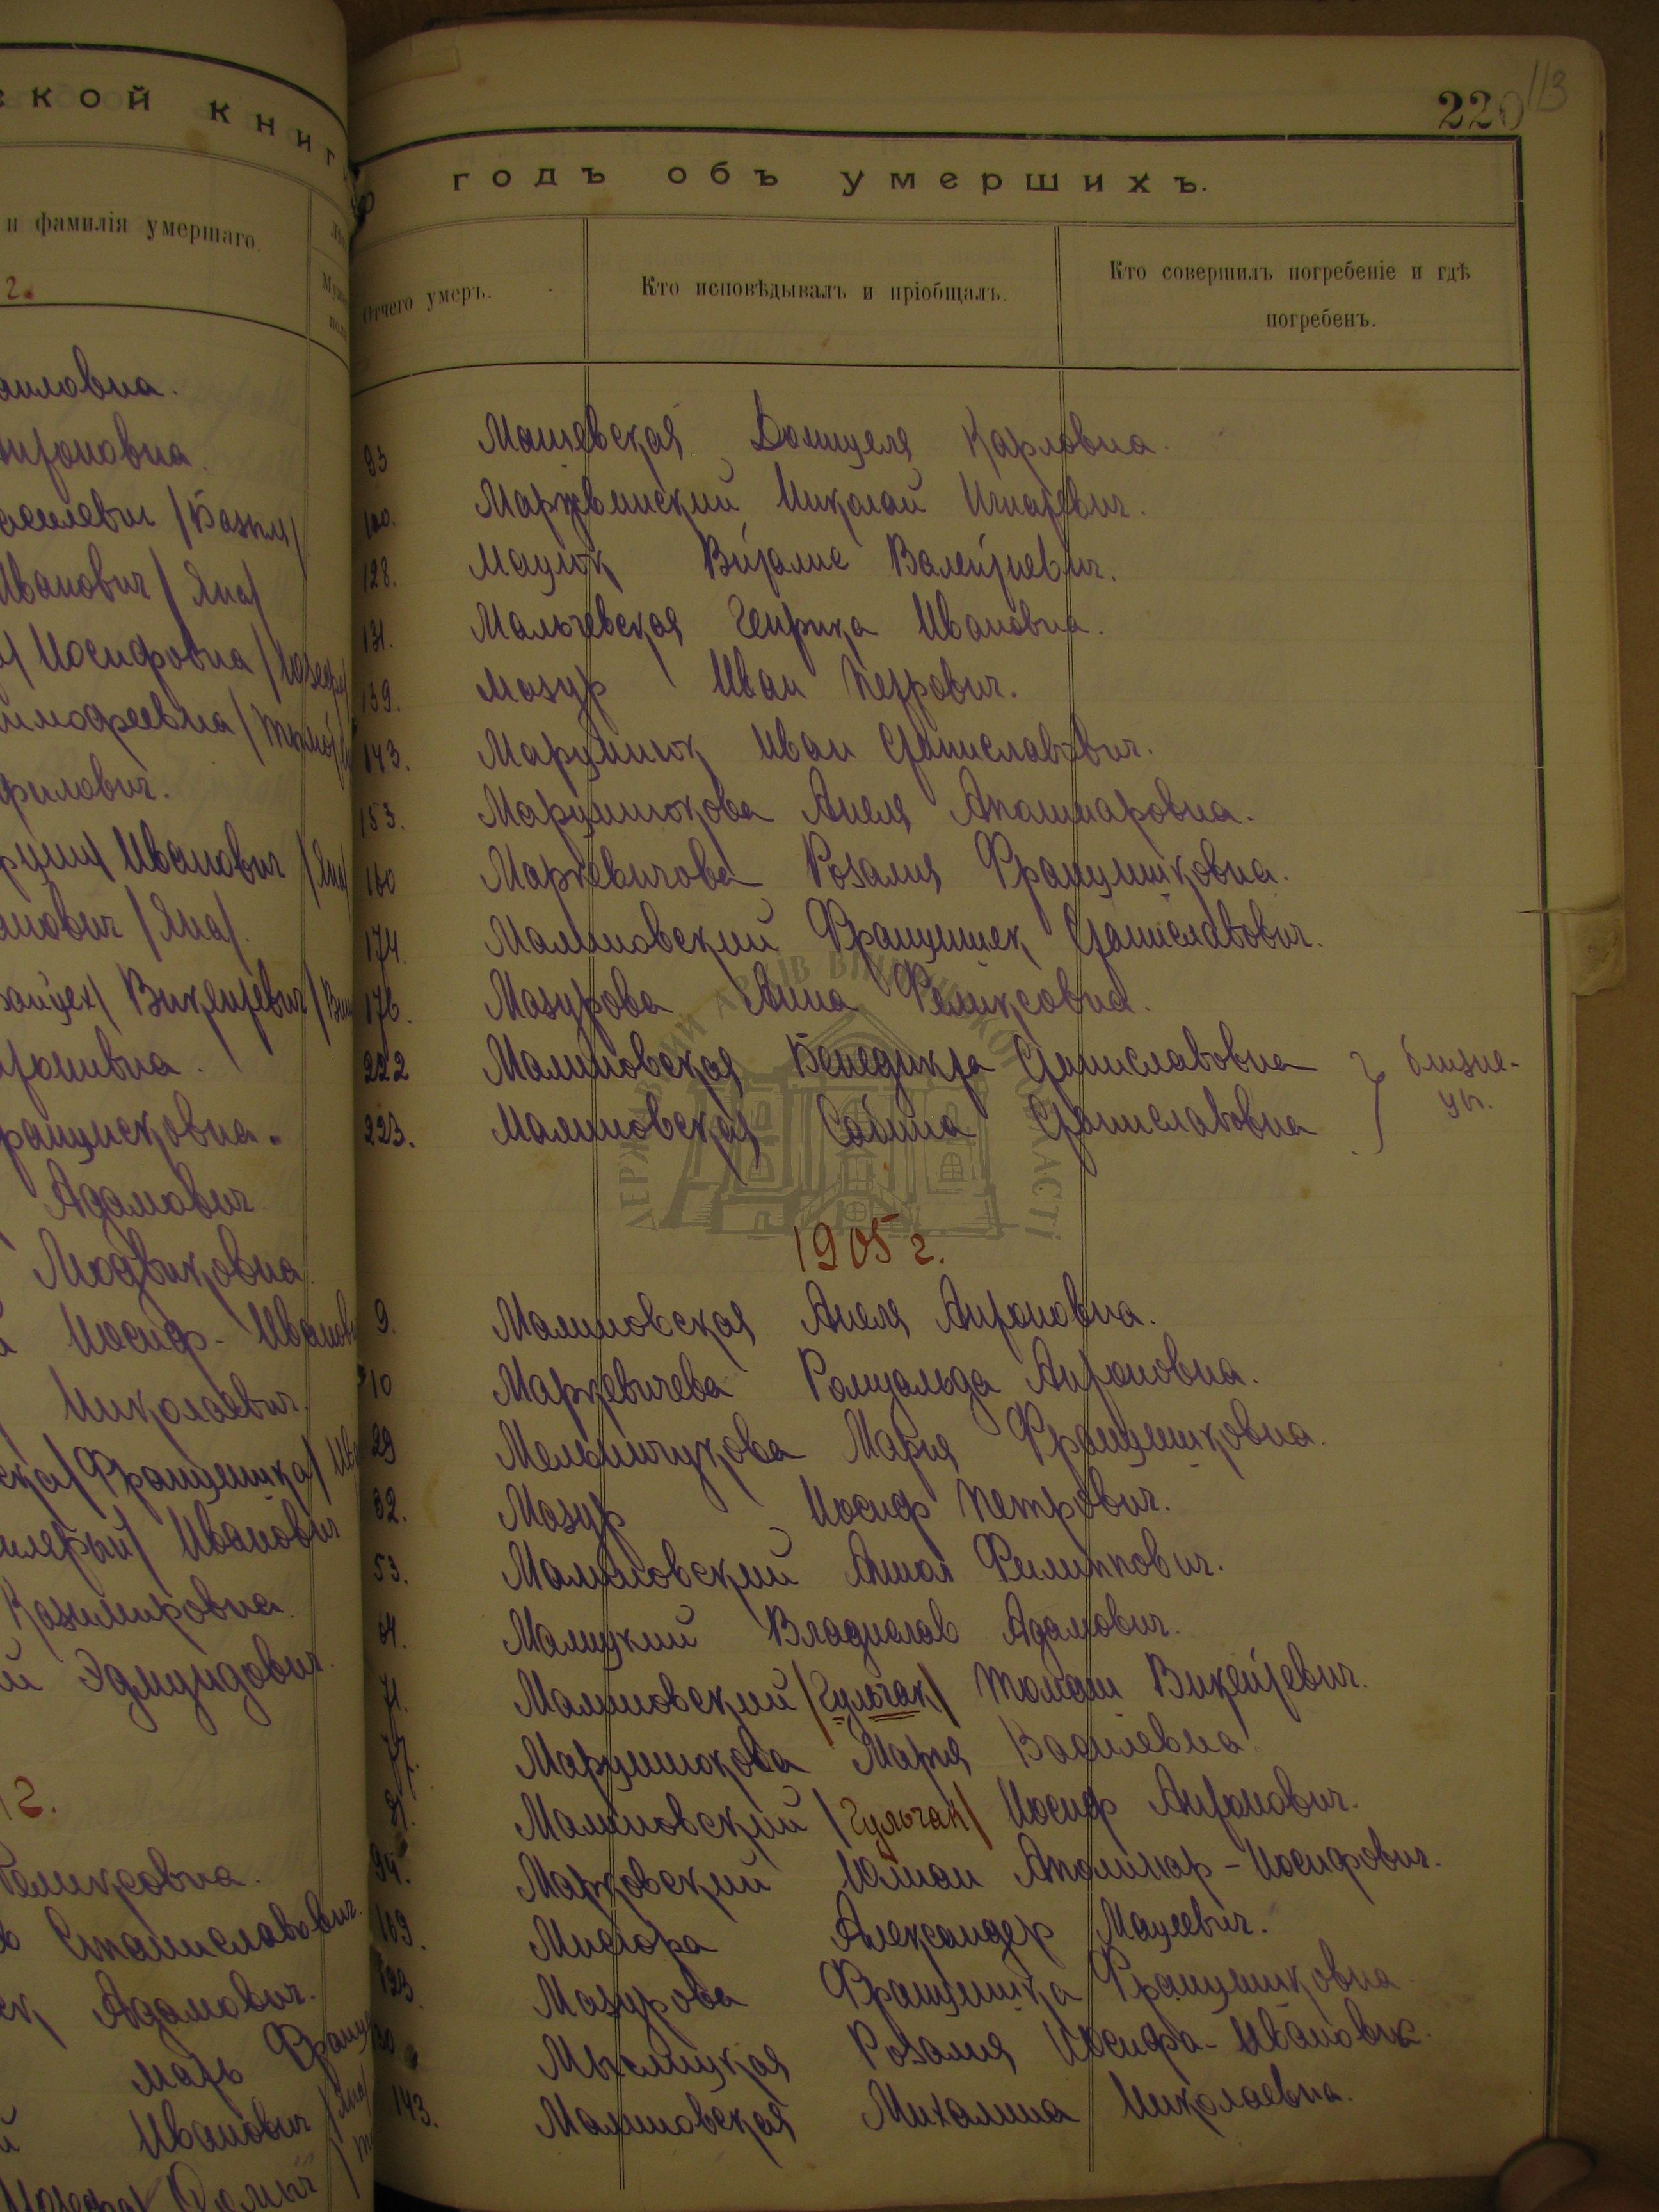 ской книг
и фамилія умершаго.
г.
220 113
годъ объ умершихъ.
Отчего умеръ.
Кто исповѣдывалъ и пріобщалъ.
Кто совершилъ погребеніе и гдѣ
погребенъ.
93 Мошевская Домицеля Карловна.
100. Марквинский Николай Игнатевич.
128. Мацюк Виталис Валентиевич.
131. Мальчевская Генрика Ивановна.
139. Мазур Иван Петрович.
143. Марцинюк Иван Станиславович.
153. Марцинюкова Анеля Апалинаровна.
160 Маркевичова Розалия Францишковна.
174. Малиновский Францишек Станиславович.
176. Мазурова Анна Феликсовна.
222 Малиновская Бенедикта Станиславовна } близне-
223. Малиновская Сабина Станиславовна цы.
1905 г.
9. Малиновская Анеля Антоновна.
10 Маркевичева Ромуальда Антоновна.
29 Мельничукова Мария Францишковна.
32. Мазур Иосиф Петрович.
53. Малиновский Антон Филиппович.
64. Малицкий Владислав Адамович.
71. Малиновский /Гульчак/ Томаш Викентевич.
77. Марцинюкова Мария Василевна
Малиновский /Гульчак/ Иосиф Антонович.
94. Марковский Юлиан Аполинар-Иосифович.
109. Мисюра Александер Мацеевич.
123. Мазурова Францишка Францишковна
Мыслицкая Розалия Иосифа-Ивановик.
143. Малиновская Михалина Николаевна.
иловна.
нтоновна.
Василевич /Базыля/
Иванович /Яна/
Иосифовна /Юзефа/
имофеевна
филович.
Иванович /Яна/
анович /Яна/.
Викентевич
ранцисковна.
Адамович
Людвиковна
Иосиф-Иванов
Николаевич
Францишка
Иванович
Казимировна.
й Эдмундович.
г.
Феликсовна.
Станиславович.
к Адамович.
мать Франц
й Иванович /Яна/
ДЕРЖАВНИЙ АРХІВ ВІННИЦЬКОЇ ОБЛАСТІ